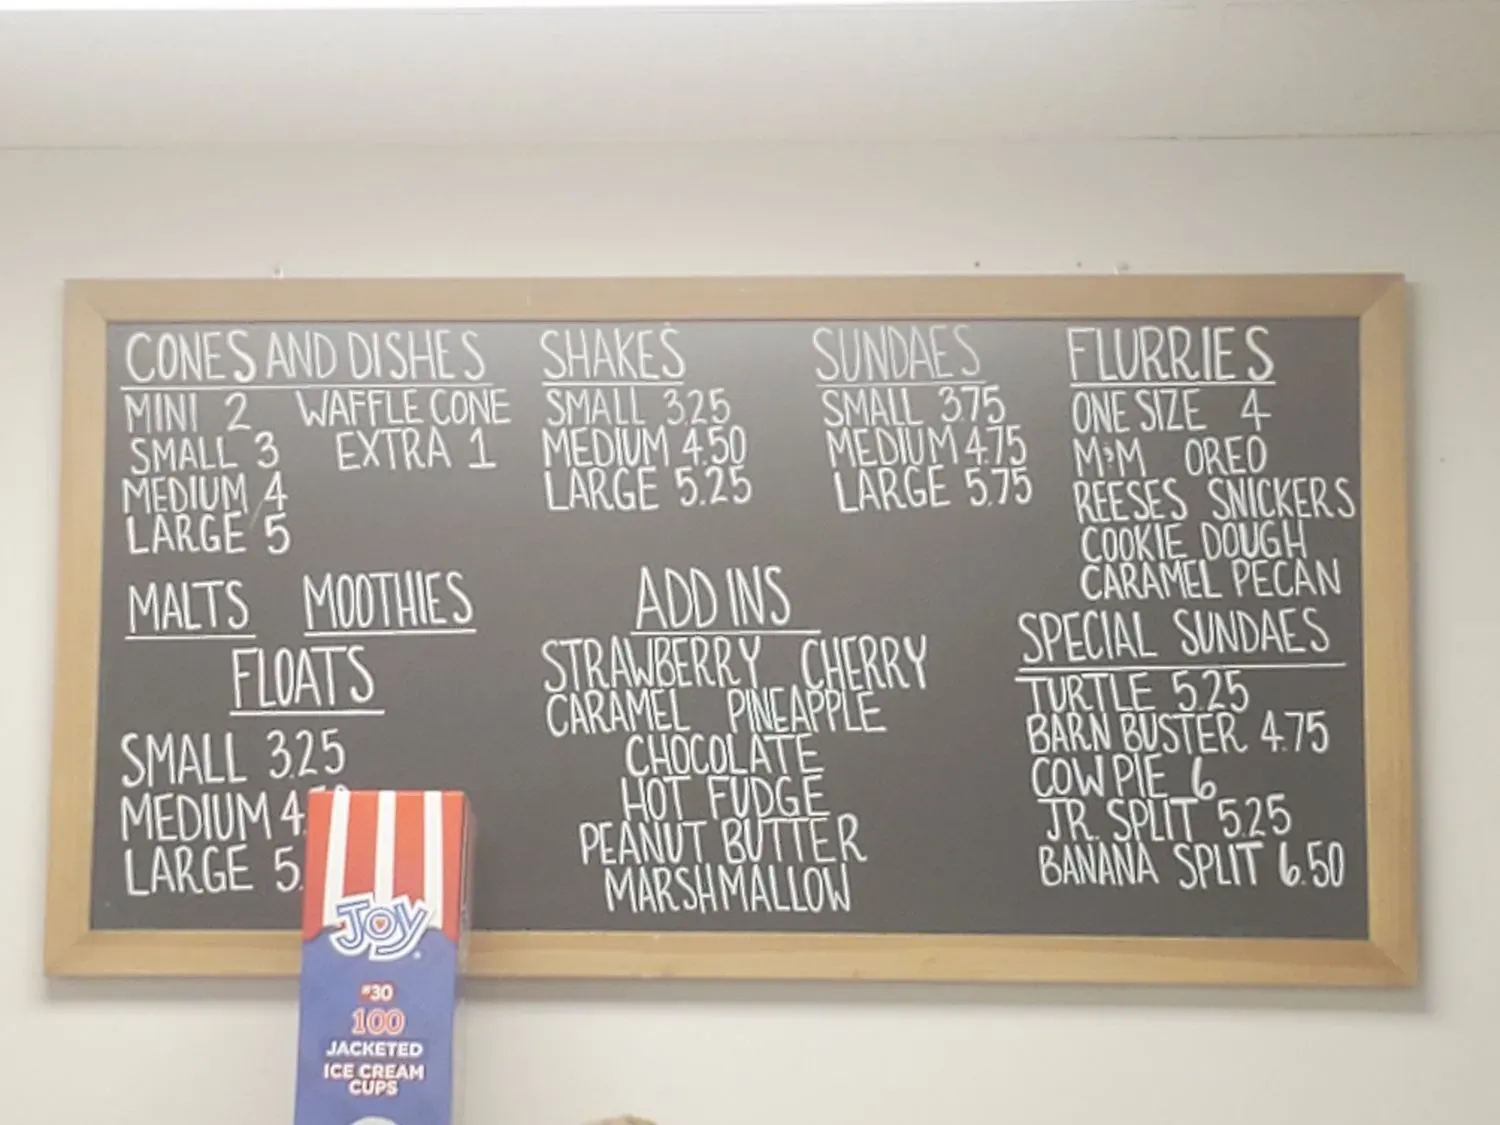 CONES AND DISHES
MINI 2 WAFFLE CONE
SMALL 3 EXTRA 1
MEDIUM 4
LARGE 5
SHAKES
SMALL 3.25
MEDIUM 4.50
LARGE 5.25
SUNDAES
SMALL 3.75
MEDIUM 4.75
LARGE 5.75
FLURRIES
ONE SIZE 4
M&M OREO
REESES SNICKERS
COOKIE DOUGH
CARAMEL PECAN
MALTS MOOTHIES
FLOATS
SMALL 3.25
MEDIUM
LARGE
ADD INS
STRAWBERRY CHERRY
CARAMEL PINEAPPLE
CHOCOLATE
HOT FUDGE
PEANUT BUTTER
MARSHMALLOW
SPECIAL SUNDAES
TURTLE 5.25
BARN BUSTER 4.75
COW PIE 6
JR. SPLIT 5.25
BANANA SPLIT 6.50
JOY
#30
100
JACKETED
ICE CREAM
CUPS